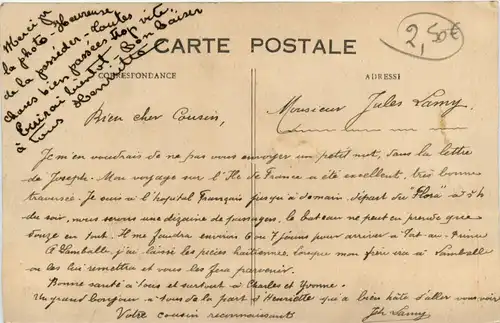 Merci pr
la photo. Heureuse
de la posséder. Toutes
choses bien passées trop vite.
Ecrirai bientôt. Bon Baiser
à tous Henriette
2,50€
CARTE POSTALE
CORRESPONDANCE
ADRESSE
Bien cher Cousin,
Monsieur Jules Lamy.
Je m'en voudrais de ne pas vous envoyer un petit mot, dans la lettre
de Joseph. Mon voyage sur l'Ile de France a été excellent, très bonne
traversée. Je suis à l'hopital Français jusqu'à demain, départ du "Flora" à 5h
du soir, nous serons une dizaine de passagers, le bateau ne peut en prendre que
douze en tout. Il me faudra environ 6 ou 7 jours pour arriver à Port-au-Prince
A Lamballe, j'ai laissé les pièces haïtiennes, lorsque mon frère ira à Lamballe
on les lui remettra et vous les fera parvenir.
Bonne santé à tous et surtout à Charles et Yvonne.
Un grand bonjour à tous de la part d'Henriette qui a bien hâte d'aller vous voir
Votre cousin reconnaissant
Jh Lamy